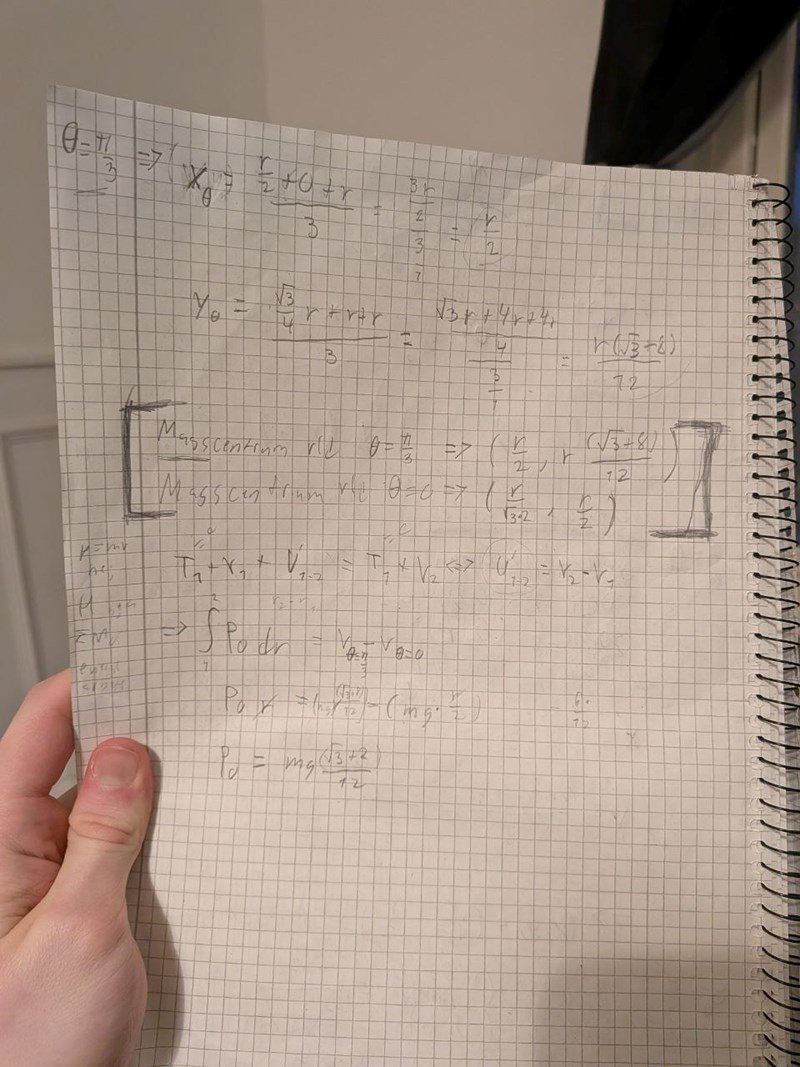 θ = π/3 ⇒ (X_θ = (r/2 + 0 + r)/3 = (3r/2)/(3/1) = r/2
Y_θ = (√3/4 r + r + r)/3 = ((√3r + 4r + 4r)/4)/(3/1) = r(√3+8)/12
Masscentrum vid θ = π/3 ⇒ (r/2, r (√3+8)/12)
Masscentrum vid θ=0 ⇒ (r/(√3·2), r/2)
T₁ + V₁ + U'₁₋₂ = T₁ + V₂ ⇔ U'₁₋₂ = V₂ - V₁
⇒ ∫₁² P₀ dr = V_θ=π/3 - V_θ=0
P₀ r = (mg r (√3+8)/12) - (mg · r/2)
P₀ = mg (√3+2)/12